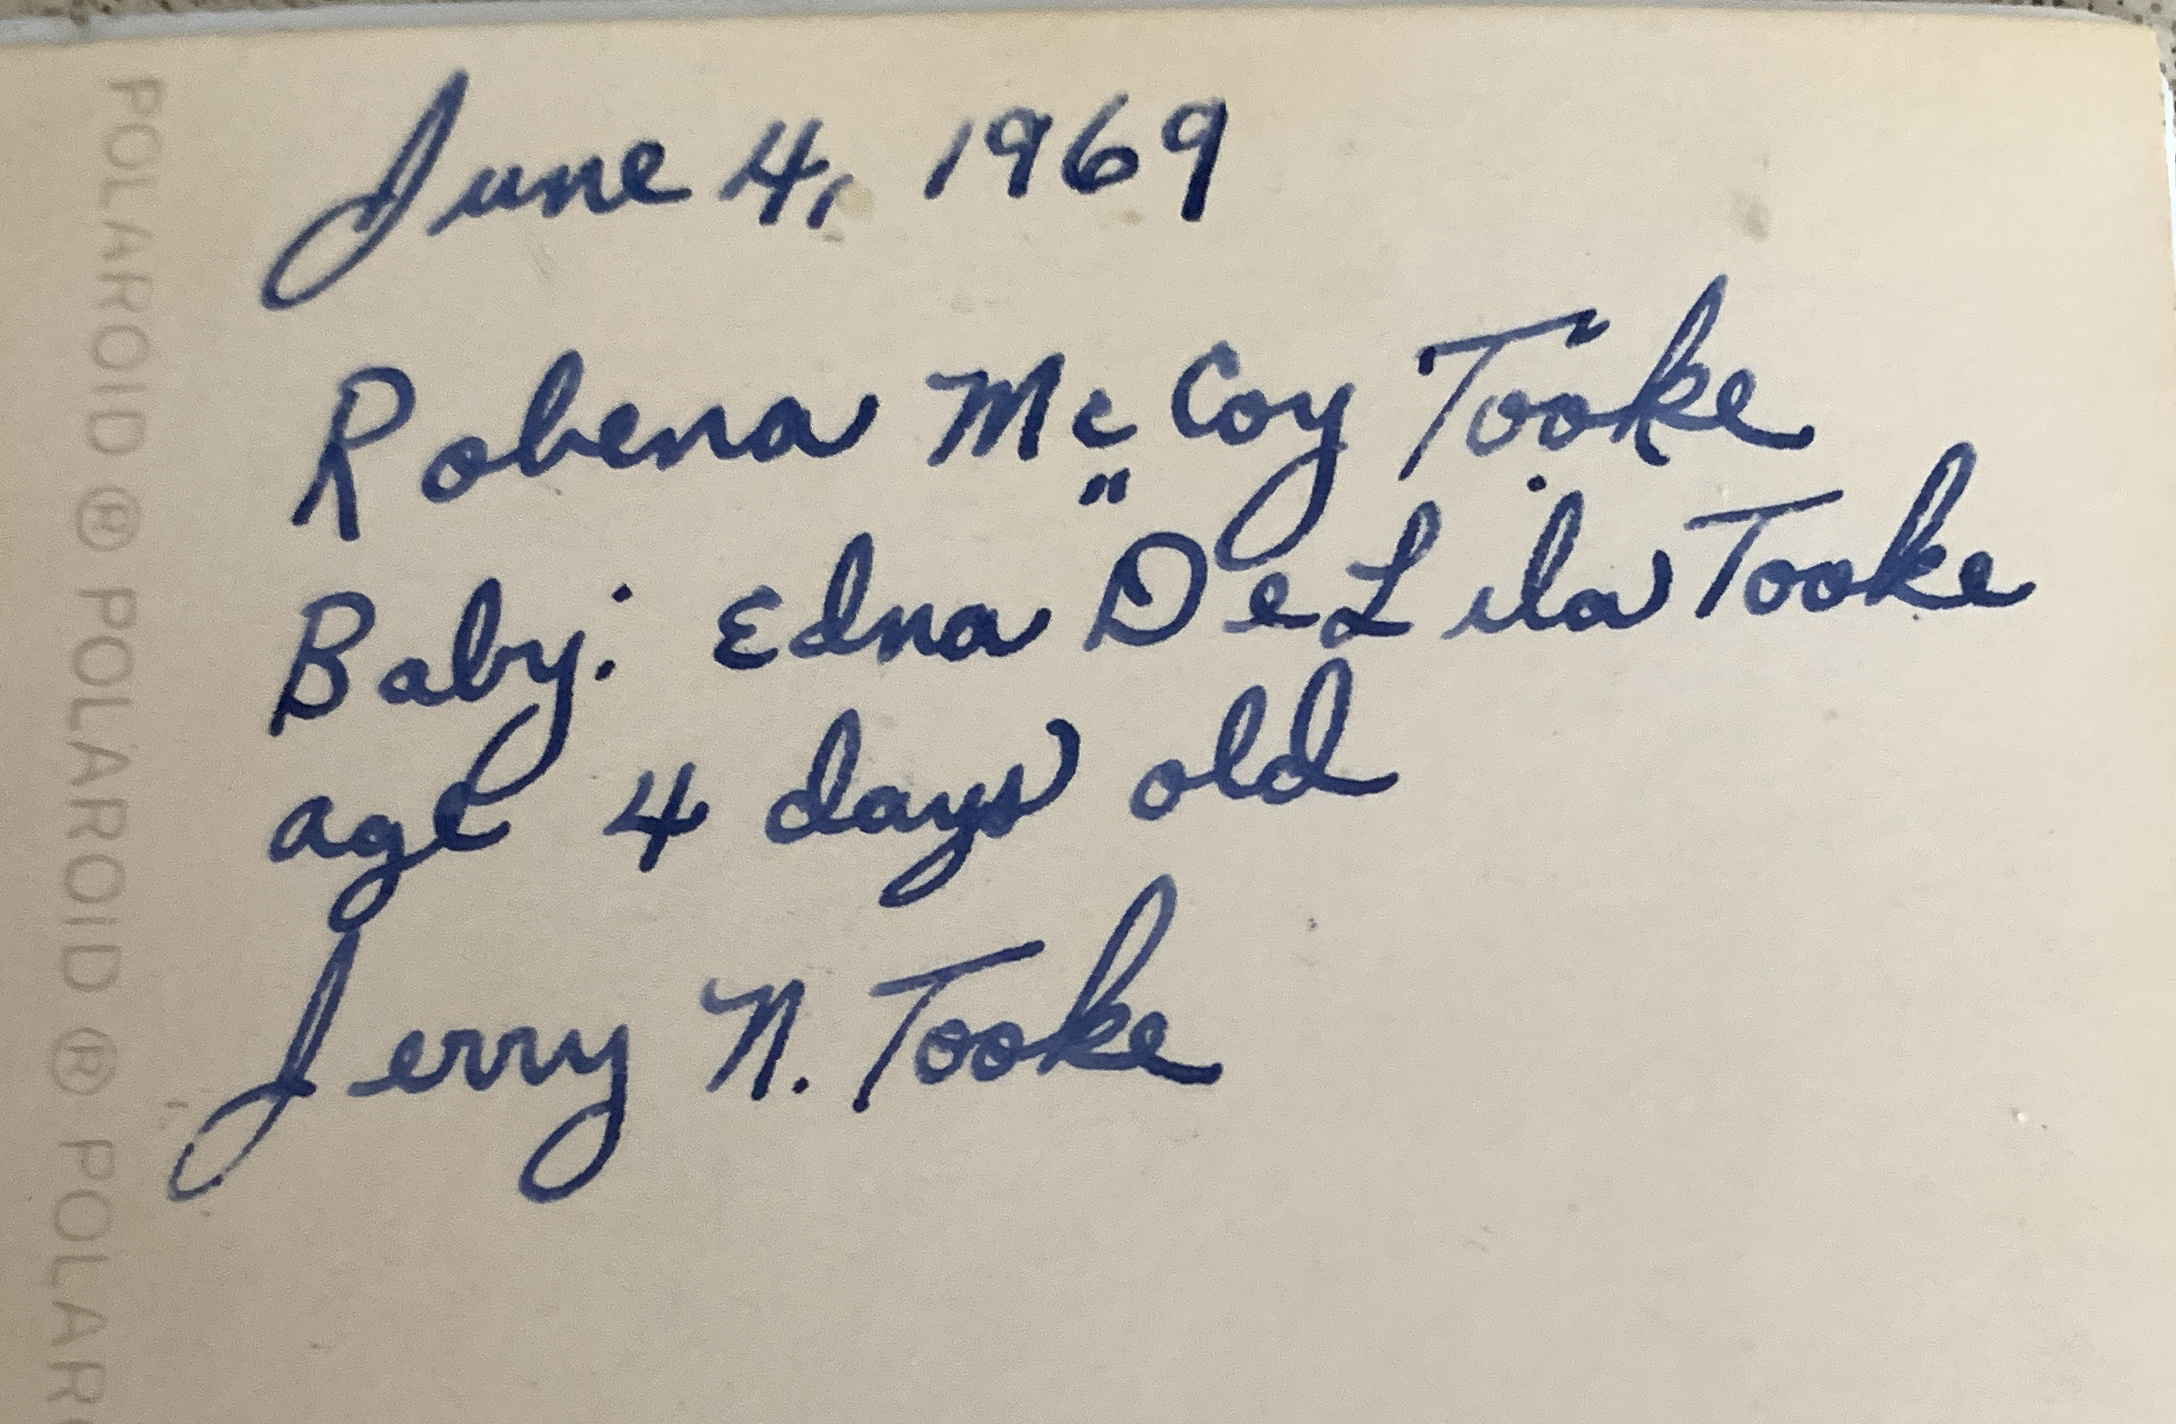 June 4, 1969
Robena McCoy Tooke
Baby: Edna DeLila Tooke
age 4 days old
Jerry N. Tooke
POLAROID ® POLAROID ® POLAROID ® POLAR